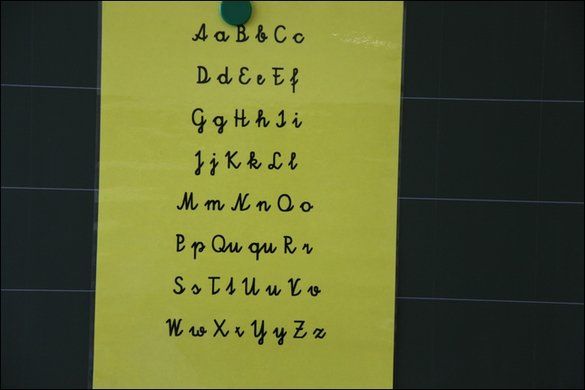 A a B b C c
D d E e F f
G g H h I i
J j K k L l
M m N n O o
P p Qu qu R r
S s T t U u V v
W w X x Y y Z z